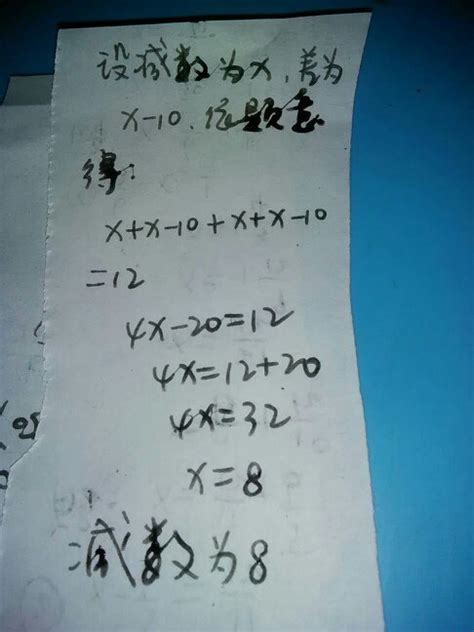 设减数为x,差为
x-10,依题意
得:
x+x-10+x+x-10
=12
4x-20=12
4x=12+20
4x=32
x=8
减数为8